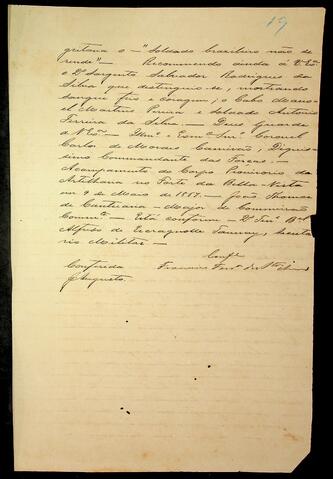 19
gritava o — "Soldado brasileiro não se
rende" — Recommendo ainda á V. Exª
o 2º Sargento Salvador Rodrigues da
Silva que destinguio-se, mostrando
sangue frio e coragem, o Cabo Mano-
el Martins Pereira e Soldado Antonio
Ferreira da Silva — Deus Guarde
a V. Exª — Illmº e Exmº Snrº Coronel
Carlos de Moraes Camisão, Dignis-
simo Commandante das Forças —
Acampamento do Corpo Provisorio da
Artilharia no Forte da Bella-Vista
em 9 de Maio de 1867 — João Thomaz
de Cantuaria — Major de Commissão
Commte — Está conforme — 2º Tenº Bel
Alfredo de Escragnolle Taunay, Secreta
rio Militar —
Conferida
Augusto
Confe
Francisco